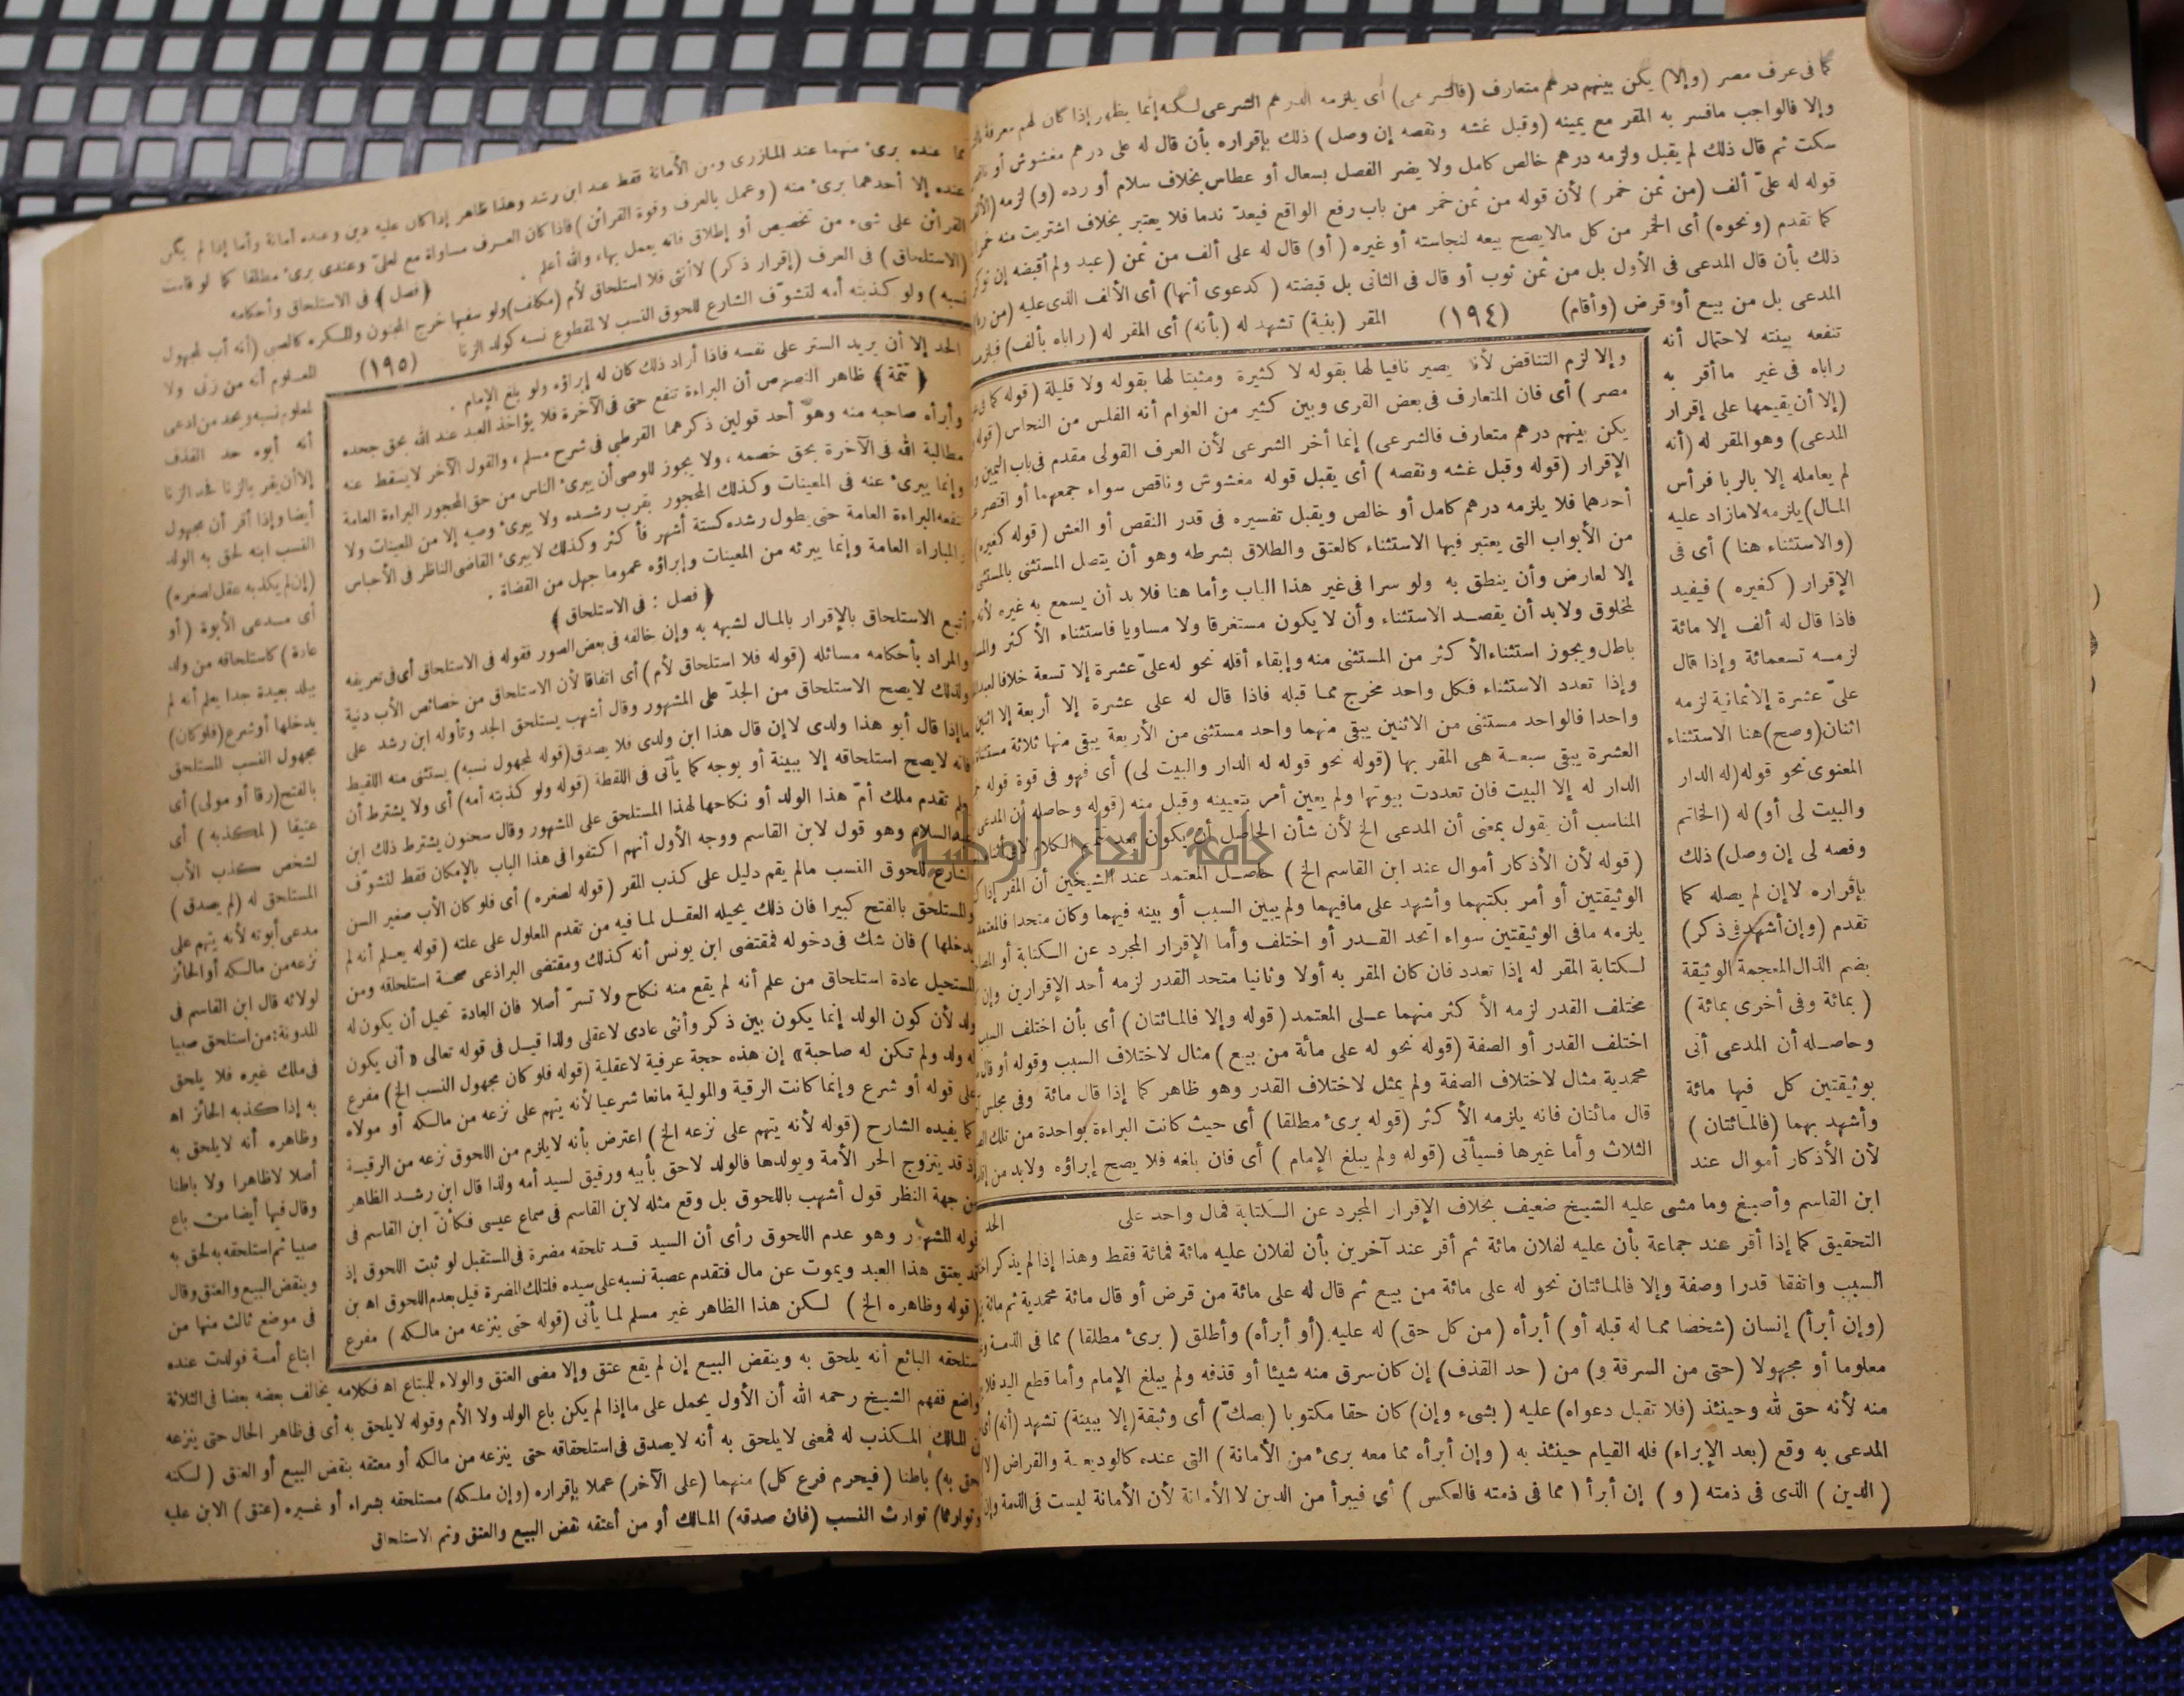 كما فى عرف مصر (وإلا) يكن بينهم درهم متعارف (فالشرعى) أى يلزمه الدرهم الشرعى لكنه إنما يظهر إذا كان لهم معرفة
وإلا فالواجب مافسر به المقر مع يمينه (وقبل غشه ونقصه إن وصل) ذلك بإقراره بأن قال له على درهم مغشوش أو
سكت ثم قال ذلك لم يقبل ولزمه درهم خالص كامل ولا يضر الفصل بسعال أو عطاس بخلاف سلام أو رده (و) لزمه
قوله له علىّ ألف (من ثمن خمر) لأن قوله من ثمن خمر من باب رفع الواقع فيعدّ ندما فلا يعتبر بخلاف اشتريت منه
كما تقدم (ونحوه) أى الخمر من كل مالايصح بيعه لنجاسته أو غيره (أو) قال له على ألف من ثمن (عبد ولم أقبضه إن
ذلك بأن قال المدعى فى الأول بل من ثمن ثوب أو قال فى الثانى بل قبضته (كدعوى أنها) أى الألف الذى عليه (من
المدعى بل من بيع أو قرض (وأقام) (١٩٤) المقر (بينة) تشهد له (بأنه) أى المقر له (راباه بألف)
تنفعه بينته لاحتمال أنه
راباه فى غير ما أقر به
(إلا أن يقيمها على إقرار
المدعى) وهو المقر له (أنه
لم يعامله إلا بالربا فرأس
المال) يلزمه لا مازاد عليه
(والاستثناء هنا) أى فى
الإقرار (كغيره) فيفيد
فاذا قال له ألف إلا مائة
لزمه تسعمائة وإذا قال
علىّ عشرة إلا ثمانية لزمه
اثنان (وصح) هنا الاستثناء
المعنوى نحو قوله (له الدار
والبيت لى أو) له (الخاتم
وفصه لى إن وصل) ذلك
بإقراره لا إن لم يصله كما
تقدم (وإن أشهد فى ذكر)
بضم الذال المعجمة الوثيقة
(بمائة وفى أخرى بمائة)
وحاصله أن المدعى أتى
بوثيقتين كل فيها مائة
وأشهد بهما (فالمائتان)
لأن الأذكار أموال عند
وإلا لزم التناقض لأنه يصير نافيا لها بقوله لا كثيرة ومثبتا لها بقوله ولا قليلة (قوله كما فى
مصر) أى فان المتعارف فى بعض القرى وبين كثير من العوام أنه الفلس من النحاس (قوله
يكن بينهم درهم متعارف فالشرعى) إنما أخر الشرعى لأن العرف القولى مقدم فى باب اليمين
الإقرار (قوله وقبل غشه ونقصه) أى يقبل قوله مغشوش وناقص سواء جمعهما أو اقتصر
أحدهما فلا يلزمه درهم كامل أو خالص ويقبل تفسيره فى قدر النقص أو الغش (قوله كغيره)
من الأبواب التى يعتبر فيها الاستثناء كالعتق والطلاق بشرطه وهو أن يتصل المستثنى
إلا لعارض وأن ينطق به ولو سرا فى غير هذا الباب وأما هنا فلا بد أن يسمع به غيره لأنه
لمخلوق ولابد أن يقصد الاستثناء وأن لا يكون مستغرقا ولا مساويا فاستثناء الأكثر
باطل ويجوز استثناء الأكثر من المستثنى منه وإبقاء أقله نحو له علىّ عشرة إلا تسعة خلافا
وإذا تعدد الاستثناء فكل واحد مخرج مما قبله فاذا قال له على عشرة إلا أربعة إلا اثنين
واحدا فالواحد مستثنى من الاثنين يبقى منهما واحد مستثنى من الأربعة يبقى منها ثلاثة
العشرة يبقى سبعة هى المقر بها (قوله نحو قوله له الدار والبيت لى) أى فهو فى قوة قوله
الدار له إلا البيت فان تعددت بيوتها ولم يعين أمر بتعيينه وقبل منه (قوله وحاصله أن المدعى
المناسب أن يقول بمعنى أن المدعى الخ لأن شأن الحاصل أن يكون بعد
(قوله لأن الأذكار أموال عند ابن القاسم الخ) حاصل المعتمد عند الشيخين أن المقر إذا
الوثيقتين أو أمر بكتبهما وأشهد على مافيهما ولم يبين السبب أو بينه فيهما وكان متحدا
يلزمه مافى الوثيقتين سواء اتحد القدر أو اختلف وأما الإقرار المجرد عن الكتابة أو
لكتابة المقر له إذا تعدد فان كان المقر به أولا وثانيا متحد القدر لزمه أحد الإقرارين وإن
مختلف القدر لزمه الأكثر منهما على المعتمد (قوله وإلا فالمائتان) أى بأن اختلف السبب
اختلف القدر أو الصفة (قوله نحو له على مائة من بيع) مثال لاختلاف السبب وقوله أو قال
محمدية مثال لاختلاف الصفة ولم يمثل لاختلاف القدر وهو ظاهر كما إذا قال مائة وفى مجلس
قال مائتان فانه يلزمه الأكثر (قوله برئ مطلقا) أى حيث كانت البراءة بواحدة من تلك
الثلاث وأما غيرها فسيأتى (قوله ولم يبلغ الإمام) أى فان بلغه فلا يصح إبراؤه ولابد من
الحد
ابن القاسم وأصبغ وما مشى عليه الشيخ ضعيف بخلاف الإقرار المجرد عن الكتابة فمال واحد على
التحقيق كما إذا أقر عند جماعة بأن عليه لفلان مائة ثم أقر عند آخرين بأن لفلان عليه مائة فمائة فقط وهذا إذا لم يذكر
السبب واتفقا قدرا وصفة وإلا فالمائتان نحو له على مائة من بيع ثم قال له على مائة من قرض أو قال مائة محمدية ثم مائة
(وإن أبرأ) إنسان (شخصا مما له قبله أو) أبرأه (من كل حق) له عليه (أو أبرأه) وأطلق (برئ مطلقا) مما فى الذمة
معلوما أو مجهولا (حتى من السرقة و) من (حد القذف) إن كان سرق منه شيئا أو قذفه ولم يبلغ الإمام وأما قطع اليد
منه لأنه حق لله وحينئذ (فلا تقبل دعواه) عليه (بشىء وإن) كان حقا مكتوبا (بصكّ) أى وثيقة (إلا ببينة) تشهد (أنه)
المدعى به وقع (بعد الإبراء) فله القيام حينئذ به (وإن أبرأه مما معه برئ من الأمانة) التى عنده كالوديعة والقراض (لا
(الدين) الذى فى ذمته (و) إن أبرأ (مما فى ذمته فالعكس) أى فيبرأ من الدين لا الأمانة لأن الأمانة ليست فى الذمة
مما عنده برئ منهما عند المازرى ومن الأمانة فقط عند ابن رشد وهذا ظاهر إذا كان عليه دين وعنده أمانة وأما إذا لم يكن
عنده إلا أحدهما برئ منه (وعمل بالعرف وقوة القرائن) فاذا كان العرف مساواة مع لعلىّ وعندى برئ مطلقا كما لو قامت
القرائن على شىء من تخصيص أو إطلاق فانه يعمل بها، والله أعلم . (فصل) فى الاستلحاق وأحكامه
(الاستلحاق) فى العرف (إقرار ذكر) لا أنثى فلا استلحاق لأم (مكلف) ولو سفيها خرج المجنون والمكره كالصبى (أنه أب لمجهول
نسبه) ولو كذبته أمه لتشوّف الشارع للحوق النسب لا لمقطوع نسبه كولد الزنا (١٩٥)
المعلوم أنه من زنى ولا
لمعلوم نسبه ويحد من ادعى
أنه أبوه حد القذف
إلا أن يقر بالزنا فحد الزنا
أيضا وإذا أقر أن مجهول
النسب ابنه لحق به الولد
(إن لم يكذبه عقل لصغره)
أى مدعى الأبوة (أو
عادة) كاستلحاقه من ولد
ببلد بعيدة جدا يعلم أنه لم
يدخلها أو شرع (فلو كان)
مجهول النسب المستلحق
بالفتح (رقا أو مولى) أى
عتيقا (لمكذبه) أى
لشخص كذب الأب
المستلحق له (لم يصدق)
مدعى أبوته لأنه يتهم على
نزعه من مالكه أو الحائز
لولائه قال ابن القاسم فى
المدونة: من استلحق صبيا
فى ملك غيره فلا يلحق
به إذا كذبه الحائز اه
وظاهره أنه لايلحق به
أصلا لا ظاهرا ولا باطنا
وقال فيها أيضا من باع
صبيا ثم استلحقه به لحق به
وينقض البيع والعتق وقال
فى موضع ثالث منها من
ابتاع أمة فولدت عنده
الحد إلا أن يريد الستر على نفسه فاذا أراد ذلك كان له إبراؤه ولو بلغ الإمام .
(تتمة) ظاهر النصوص أن البراءة تنفع حتى فى الآخرة فلا يؤاخذ العبد عند الله بحق جحده
وأبرأه صاحبه منه وهو أحد قولين ذكرهما القرطبى فى شرح مسلم، والقول الآخر لايسقط عنه
مطالبة الله فى الآخرة بحق خصمه، ولا يجوز للوصى أن يبرئ الناس من حق المحجور البراءة العامة
وإنما يبرئ عنه فى المعينات وكذلك المحجور بقرب رشده ولا يبرئ وصيه إلا من المعينات ولا
تنفعه البراءة العامة حتى يطول رشده كستة أشهر فأكثر وكذلك لايبرئ القاضى الناظر فى الأحباس
المبارأة العامة وإنما يبرئه من المعينات وإبراؤه عموما جهل من القضاة .
(فصل : فى الاستلحاق)
أتبع الاستلحاق بالإقرار بالمال لشبهه به وإن خالفه فى بعض الصور فقوله فى الاستلحاق أى فى تعريفه
والمراد بأحكامه مسائله (قوله فلا استلحاق لأم) أى اتفاقا لأن الاستلحاق من خصائص الأب دنية
ولذلك لايصح الاستلحاق من الجدّ على المشهور وقال أشهب يستلحق الجد وتأوله ابن رشد على
ما إذا قال أبو هذا ولدى لا إن قال هذا ابن ولدى فلا يصدق (قوله لمجهول نسبه) يستثنى منه اللقيط
فانه لايصح استلحاقه إلا ببينة أو بوجه كما يأتى فى اللقطة (قوله ولو كذبته أمه) أى ولا يشترط أن
تقدم ملك أمّ هذا الولد أو نكاحها لهذا المستلحق على المشهور وقال سحنون يشترط ذلك ابن
عبد السلام وهو قول لابن القاسم ووجه الأول أنهم اكتفوا فى هذا الباب بالإمكان فقط لتشوّف
الشارع للحوق النسب مالم يقم دليل على كذب المقر (قوله لصغره) أى فلو كان الأب صغير السن
والمستلحق بالفتح كبيرا فان ذلك يحيله العقل لما فيه من تقدم المعلول على علته (قوله يعلم أنه لم
يدخلها) فان شك فى دخوله فمقتضى ابن يونس أنه كذلك ومقتضى البراذعى صحة استلحاقه ومن
المستحيل عادة استلحاق من علم أنه لم يقع منه نكاح ولا تسرّ أصلا فان العادة تحيل أن يكون له
ولد لأن كون الولد إنما يكون بين ذكر وأنثى عادى لاعقلى ولذا قيل فى قوله تعالى «أنى يكون
له ولد ولم تكن له صاحبة» إن هذه حجة عرفية لاعقلية (قوله فلو كان مجهول النسب الخ) مفرع
على قوله أو شرع وإنما كانت الرقية والمولية مانعا شرعيا لأنه يتهم على نزعه من مالكه أو مولاه
كما يفيده الشارح (قوله لأنه يتهم على نزعه الخ) اعترض بأنه لايلزم من اللحوق نزعه من الرقية
إذ قد يتزوج الحر الأمة ويولدها فالولد لاحق بأبيه ورقيق لسيد أمه ولذا قال ابن رشد الظاهر
من جهة النظر قول أشهب باللحوق بل وقع مثله لابن القاسم فى سماع عيسى فكأنّ ابن القاسم فى
قوله المشهور وهو عدم اللحوق رأى أن السيد قد تلحقه مضرة فى المستقبل لو ثبت اللحوق إذ
قد يعتق هذا العبد ويموت عن مال فتقدم عصبة نسبه على سيده فلتلك المضرة قيل بعدم اللحوق اه بن
(قوله وظاهره الخ) لكن هذا الظاهر غير مسلم لما يأتى (قوله حتى ينزعه من مالكه) مفرع
فاستلحقه البائع أنه يلحق به وينقض البيع إن لم يقع عتق وإلا مضى العتق والولاء للمبتاع اه فكلامه يخالف بعضه بعضا فى الثلاثة
مواضع ففهم الشيخ رحمه الله أن الأول يحمل على ما إذا لم يكن باع الولد ولا الأم وقوله لايلحق به أى فى ظاهر الحال حتى ينزعه
من المالك المكذب له فمعنى لايلحق به أنه لايصدق فى استلحاقه حتى ينزعه من مالكه أو معتقه بنقض البيع أو العتق (لكنه
يلحق به) باطنا (فيحرم فرع كل) منهما (على الآخر) عملا بإقراره (وإن ملكه) مستلحقه بشراء أو غيره (عتق) الابن عليه
وتوارثا) توارث النسب (فان صدقه) المالك أو من أعتقه نقض البيع والعتق وتم الاستلحاق
جامعة النجاح الوطنية